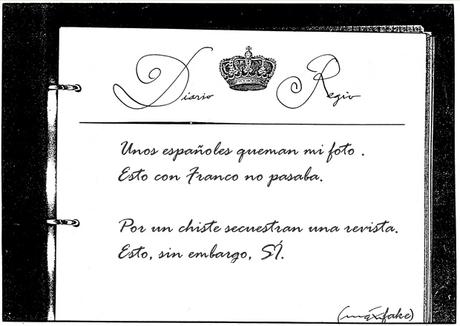 Diario Regio
Unos españoles queman mi foto.
Esto con Franco no pasaba.
Por un chiste secuestran una revista.
Esto, sin embargo, SÍ.